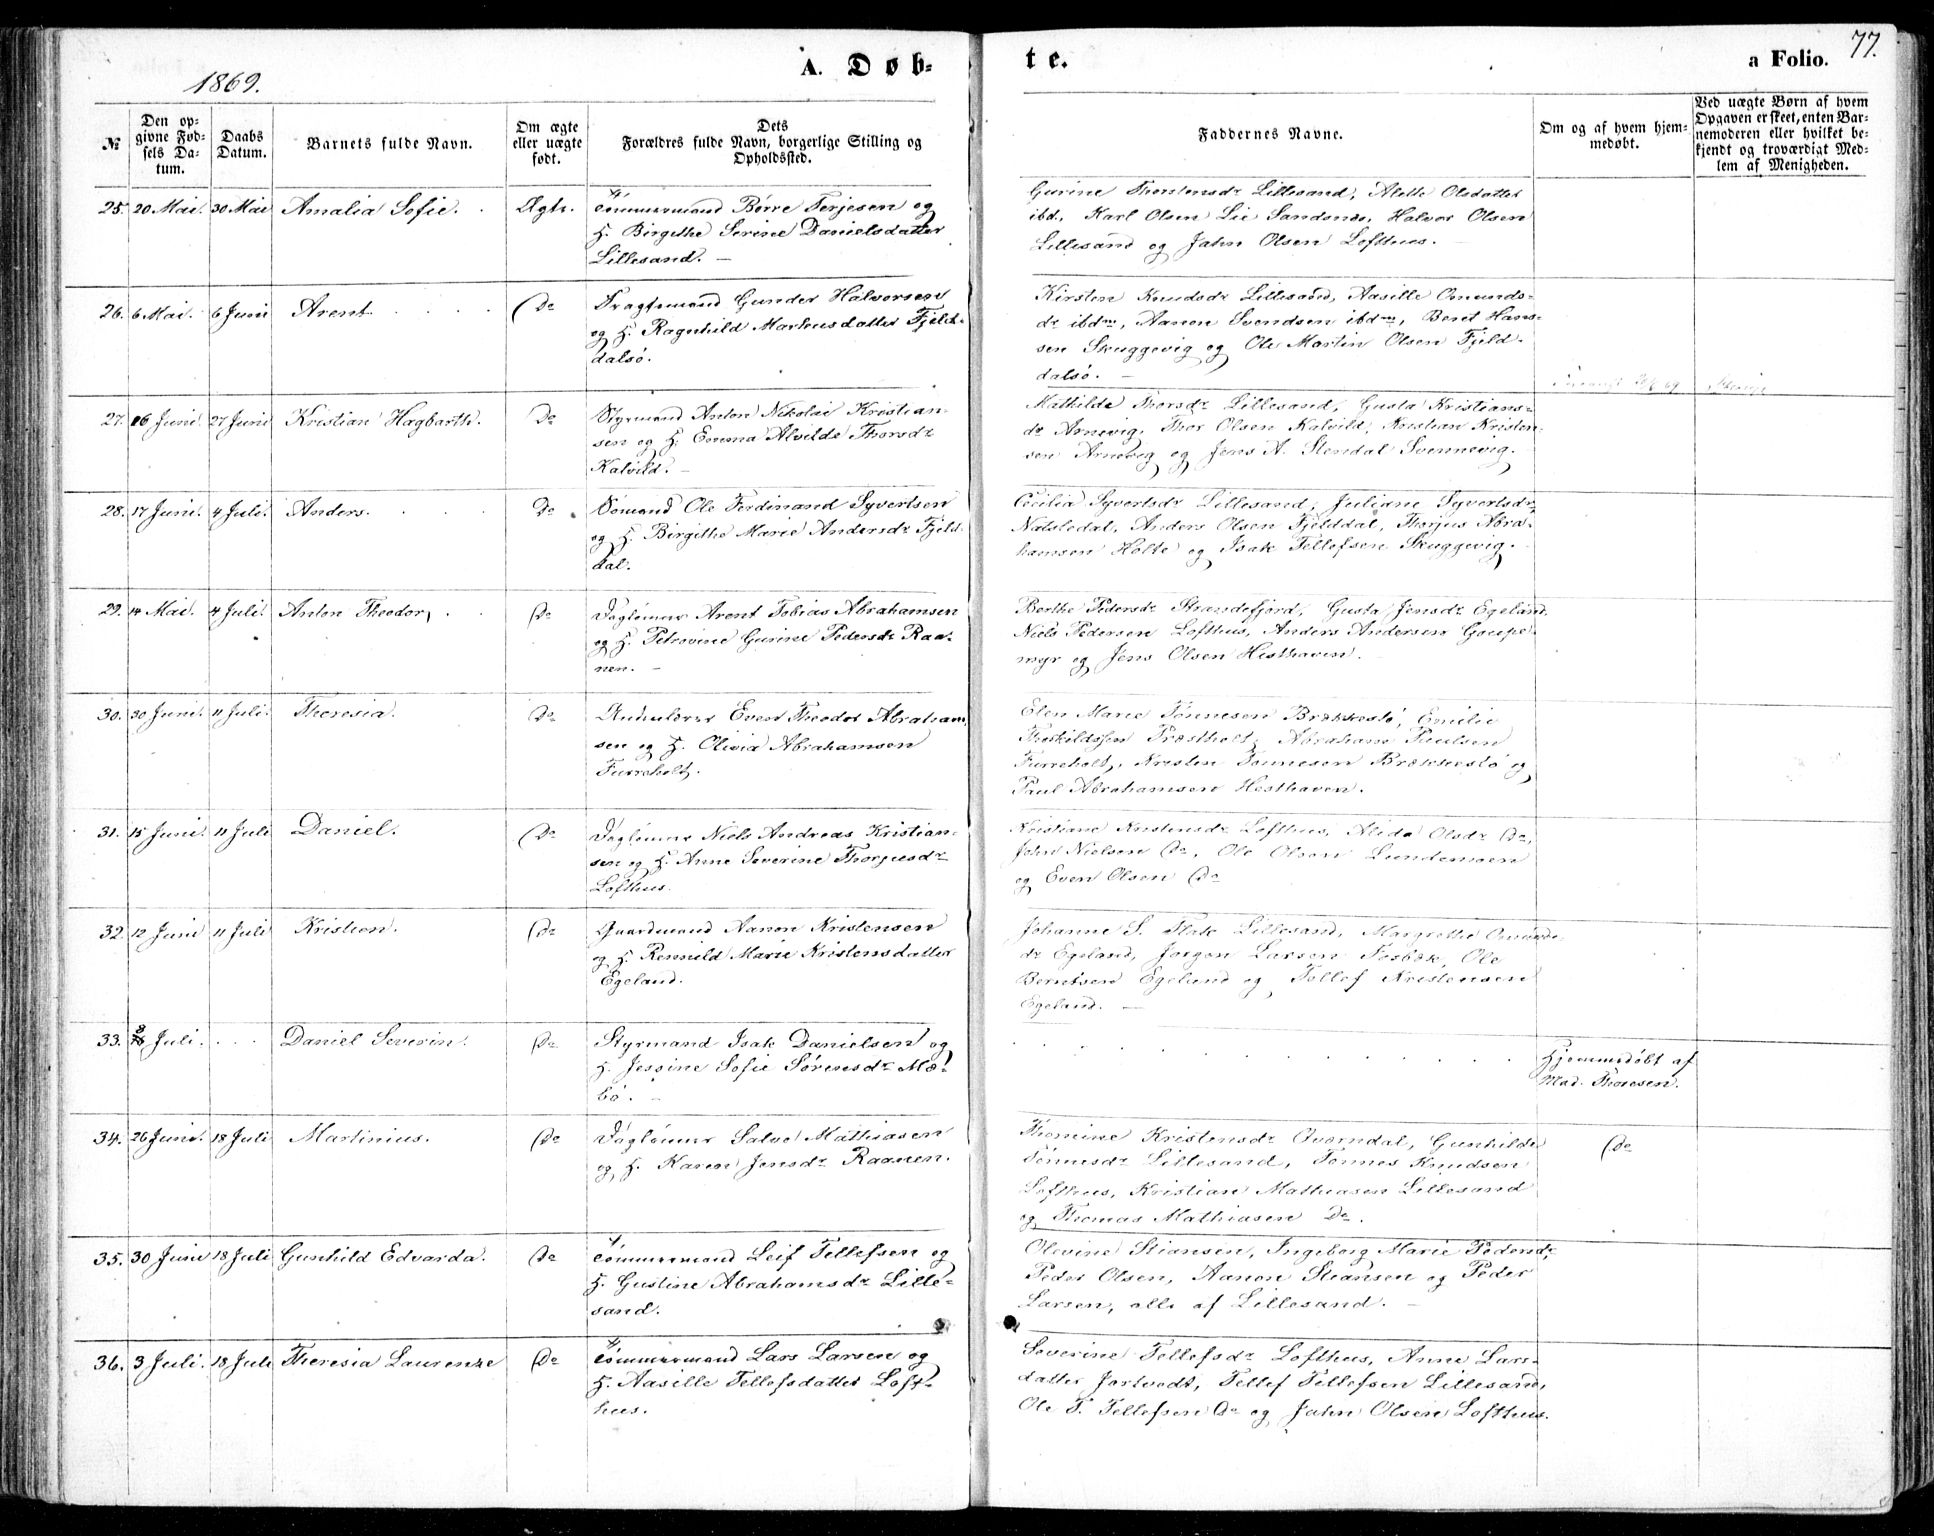 77.
1869.
A. Døb-
te.
a Folio.
№
Den op-
givne Fød-
sels Da-
tum.
Daabs
Datum.
Barnets fulde Navn.
Om ægte
eller uægte
født.
Dets
Forældres fulde Navn, borgerlige Stilling og
Opholdssted.
Faddernes Navne.
Om og af hvem hjem-
medøbt.
Ved uægte Børn af hvem
Opgaven er skeet, enten Bar-
nemoderen eller hvilket be-
kjendt og troværdigt Med-
lem af Menigheden.
25. 20 Mai. 30 Mai Amalia Sofie. Ægte.
Tömmermand Börre Terjesen og
H. Birgithe Serine Danielsdatter
Lillesand. —
Gurine Thorstensdr Lillesand, Alette Olsdatter
ibd., Karl Olsen Lie Sandsnes, Halvor Olsen
Lillesand og Jahn Olsen Lofthus. —
26. 6 Mai. 6 Juni Arent. Do
Fragtemand Gunder Halvorsen
og H. Ragnhild Markusdatter Fjeld-
dalsö.
Kirsten Knudsdr Lillesand, Aasille Omunds-
dr ibdm, Aanon Svendsen ibdm, Beret Hans-
sen Skuggevig og Ole Martin Olsen Fjeld-
dalsö. —
27. 16 Juni. 27 Juni Kristian Hagbarth. Do
Styrmand Anton Nikolai Kristian-
sen og H. Emma Alvilde Thorsdr
Kalvild. —
Mathilde Thorsdr Lillesand, Gusta Kristians-
dr Arnevig, Thor Olsen Kalvild, Kristian Kristen-
sen Arnevig og Jens A. Stendal Svennevig.
28. 17 Juni. 4 Juli. Anders. Do
Sömand Ole Ferdinand Syvertsen
og H. Birgithe Marie Andersdr Fjeld-
dal.
Cecilia Syvertsdr Lillesand, Juliane Syvertsdr
Natsledal, Anders Olsen Fjelddal, Thorjus Abra-
hamsen Holte og Isak Tellefsen Skuggevig.
29. 14 Mai. 4 Juli. Anton Theodor, Do
Daglönner Arent Tobias Abrahamsen
og H. Petrovine Gurine Pedersdr Raa-
nen. —
Berthe Pedersdr Strandefjord, Gusta Jensdr Egeland,
Niels Pedersen Lofthus, Anders Andersen Goupe-
myr og Jens Olsen Hesthaven.
30. 30 Juni. 11 Juli. Theresia. Do
Even Theodor Abraham-
sen og H. Olivia Abrahamsen
Furreholt.
Elen Marie Tönnesen Brækkestö, Emilie
Therkildssen Præstholt, Abraham Paulsen
Furreholt, Kristen Tonnesen Brækkestö og
Paul Abrahamsen Hesthaven.
31. 15 Juni. 11 Juli Daniel. Do
Daglönner Niels Andreas Kristian-
sen og H. Anne Severine Thorjusdr
Lofthus.
Kristiane Kristensdr Lofthus, Alida Olsdr Do,
John Nielsen Do, Ole Olsen Lundemoen
og Even Olsen Do
32. 12 Juni 11 Juli Kristien. Do
Gaardmand Aanon Kristensen
og H. Rennild Marie Kristensdatter
Egeland.
Johanne S. Flak Lillesand, Margrethe Omunds-
dr Egeland, Jorgen Larsen Fosbæk, Ole
Berntsen Egeland og Tellef Kristensen
Egeland. —
33. 8 Juli. Daniel Severin. Do
Styrmand Isak Danielsen og
H. Jessine Sofie Sörensdr Mæ-
bö. —
Hjemmedöbt af
Mad. Thoresen.
34. 26 Juni. 18 Juli Martinius. Do
Daglönner Salve Mathiasen
og H. Karen Jensdr Raanen.
Thomine Kristensdr Qværndal, Gunhilde
Tönnesdr Lillesand, Tonnes Knudsen
Lofthus, Kristian Mathiasen Lillesand
og Thomas Mathiasen Do.
Do
35. 30 Juni 18 Juli Gunhild Edvarda. Do
Tömmermand Leif Tellefsen og
H. Gustine Abrahamsdr Lille-
sand.
Olevine Stiansen, Ingeborg Marie Pedersdr,
Peder Olsen, Aanon Stiansen og Peder
Larsen, alle af Lillesand. —
36. 3 Juli. 18 Juli Theresia Laurentze Do
Tömmermand Lars Larsen og
H. Aasille Tellefsdatter Loft-
hus.
Severine Tellefsdr Lofthus, Anne Lars-
datter Jortvedt, Tellef Tellefsen Lillesand,
Ole T. Tellefsen Do og Jahn Olsen Lofthus.